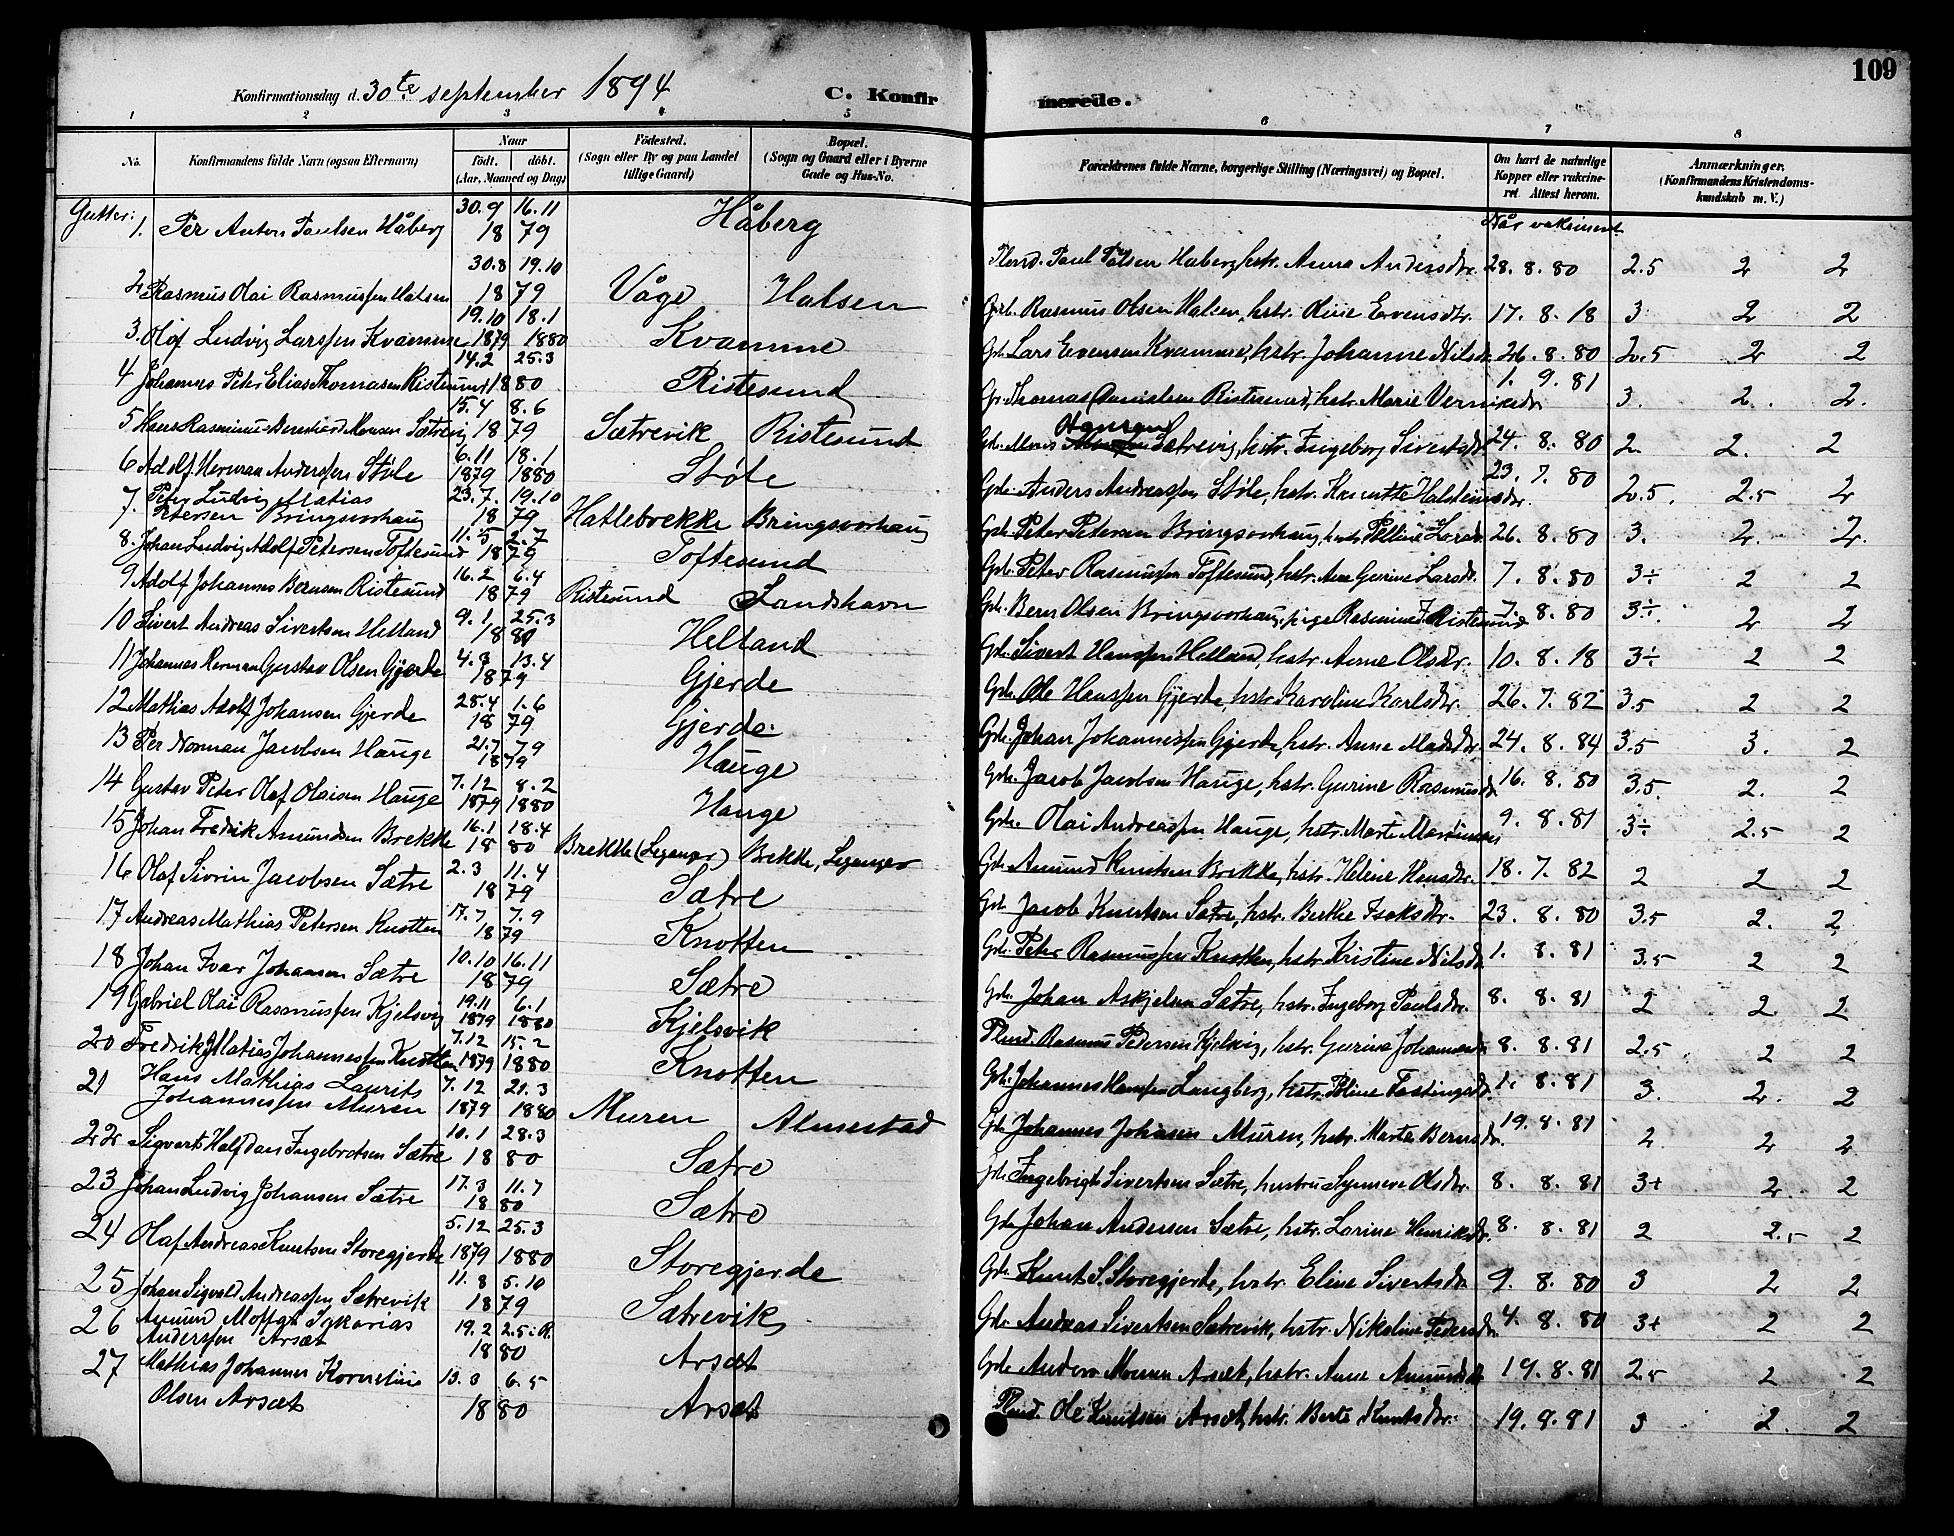 109
Konfirmationsdag d. 30te september 1894 C. Konfirmerede.
1 2 3 4 5 6 7 8
No. Konfirmandens fulde Navn (ogsaa Efternavn) Naar født. døbt. (Aar, Maaned og Dag) Födested. (Sogn eller By og paa Landet tillige Gaard) Bopæl. (Sogn og Gaard eller i Byerne Gade og Hus-No. Forældrenes fulde Navne, borgerlige Stilling (Næringsvei) og Bopæl. Om havt de naturlige Kopper eller vakcineret. Attest herom. Anmærkninger. (Konfirmandens Kristendomskundskab m. V.)
Gutter: Når vaksinert.
1. Per Anton Paulsen Håberg 30.9 16.11 1879 Håberg Plmd. Paul Pålsen Haberg hstr. Anna Andersdtr. 28.8.80 2.5 2 2
2. Rasmus Olai Rasmussen Halsen 30.8 19.10 1879 Våge Halsen Gdr. Rasmus Olsen Halsen, hstr. Oline Evensdtr. 17.8.18 3 2 2
3. Olaf Ludvig Larssen Kvamme 19.10 1879 18.1 1880 Kvamme Gdr. Lars Evensen Kvamme, hstr. Johanne Nilsdtr. 26.8.80 2.5 2 2
4 Johannes Peter Elias Thomasen Ristesund 14.2 25.3 1880 Ristesund Gdr. Thomas Danielsen Ristesund, hstr. Marie 1.9.81 3. 2. 2.
5 Hans Rasmus Bernhard Monsen Sætrevig 15.4 8.6 1879 Sætrevik Ristesund Gdr. Mons Sætrevig, hstr. Ingeborg Sivertsdtr 24.8.80 2 2. 2
6 Adolf Herman Anderssen Støle 6.11 1879 18.1 1880 Støle Gdr. Anders Andreassen Støle, hstr. Knutte Halsteinsdtr. 23.7.80 2.5. 2.5 2
7. Peter Ludvig Matias Petersen Bringsvorhaug 23.7. 19.10 1879 Hatlebrekke Bringsvorhaug Gdr. Peter Petersen Bringsvorhaug, hstr. Pelline Larsdtr. 26.8.80 3. 2. 2.
8. Johan Ludvig Adolf Petersen Toftesund 11.5 2.7 1879 Toftesund Gdr. Peter Rasmussen Toftesund, hstr. Ane Gurine Larsdtr. 7.8.80 3÷ 2 2
9 Adolf Johannes Bernsen Ristesund 16.2 6.4 1879 Ristesund Sandshavn Gdr. Bern Olsen Bringsvorhaug, pige Rasmine Ristesund 7.8.80 3÷. 2 2
10 Sivert Andreas Sivertsen Helland 9.1 25.3 1880 Helland Gdr. Sivert Hanssen Helland, hstr. Anne Olsdtr. 10.8.18 3÷ 2 2
11 Johannes Herman Gustav Olsen Gjerde 4.3 13.4 1879 Gjerde Gdr. Ole Hanssen Gjerde, hstr. Karoline Karlsdtr. 26.7.82 3.5 2 2
12 Mathias Adolf Johansen Gjerde 28.4 1.6 1879 Gjerde Gdr. Johan Johannessen Gjerde, hstr. Anne Madsdtr. 24.8.84 3.5 3. 2
13 Per Norman Jacobsen Hauge 21.7 7.9 1879 Hauge Gdr. Jacob Jacobsen Hauge, hstr. Gurine Rasmusdtr. 16.8.80 3.5. 2. 2
14 Gustav Peter Olaf Olaisen Hauge 7.12 1879 8.2 1880 Hauge Gdr. Olai Andreassen Hauge, hstr. Marte 9.8.81 3÷ 2.5 2
15 Johan Fredrik Amundsen Brekke 16.1 18.4 1880 Brekke (Leganger) Brekke, Leganger Gdr. Amund Knutsen Brekke, hstr. Helene Hansdtr. 18.7.82 2 2 2
16 Olaf Sivrin Jacobsen Sætre 2.3 11.4 1879 Sætre Gdr. Jacob Knutsen Sætre, hstr. Berthe Isaksdtr. 23.8.80 3.5 2. 2
17 Andreas Mathias Petersen Knotten 17.7 7.9 1879 Knotten Gdr. Peter Rasmussen Knotten, hstr. Kristine Nilsdtr 1.8.81 3.5 2 2
18 Johan Ivar Johansen Sætre 10.10 16.11 1879 Sætre Gdr. Johan Askjelsen Sætre, hstr. Ingeborg Paulsdtr. 8.8.81 2 2 2
19 Gabriel Olai Rasmussen Kjelsvig 19.11 1879 6.1 1880 Kjelsvik Plmd. Rasmus Pedersen Kjelsvig, hstr. Gurine Johannesdtr 8.8.81 2.5 2 2
20 Fredrik Matias Johannessen Knotten 7.12 1879 15.2 1880 Knotten Gdr. Johannes Hanssen Langberg, hstr. Oline Fastingsdtr 1.8.81 3. 2. 2
21 Hans Mathias Laurits Johannessen Muren 7.12 1879 21.3 1880 Muren Almestad Gdr. Johannes Johnsen Muren, hstr. Marte Bernsdtr. 19.8.81 2 2 2
22 Sigvart Halfdan Ingebrotsen Sætre 10.1 28.3 1880 Sætre Gdr. Ingebrigt Sivertsen Sætre, hustru Synneve Olsdtr. 8.8.81 3+ 2. 2
23 Johan Ludvig Johansen Sætre 17.3 11.7 1880 Sætre Gdr. Johan Andersen Sætre, hstr. Larine Henriksdtr. 8.8.81 2 2.5 2
24 Olaf Andreas Knutsen Storegjerde 5.12 1879 25.3 1880 Storegjerde Gdr. Knut S. Storegjerde, hstr. Eline Sivertsdtr 9.8.80 3 2 2
25 Johan Sigvald Andreassen Sætrevik 11.8 5.10 1879 Sætrevik Gdr. Andreas Sivertsen Sætrevik, hstr. Nikoline Pedersdtr. 4.8.80 3+ 2 2
26 Amund Moffat Sykarias Anderssen Arsæt 19.2 2.5 1880 Arsæt Gdr. Anders Monsen Arsæt, hstr. Anne Amundsdtr 19.8.81 2.5 2 2
27 Mathias Johannes Kornelius Olsen Arsæt 13.3 6.5 1880 Arsæt Plmd. Ole Knutsen Arsæt, hstr. Berte Knutsdtr. 19.8.81 3 2. 2